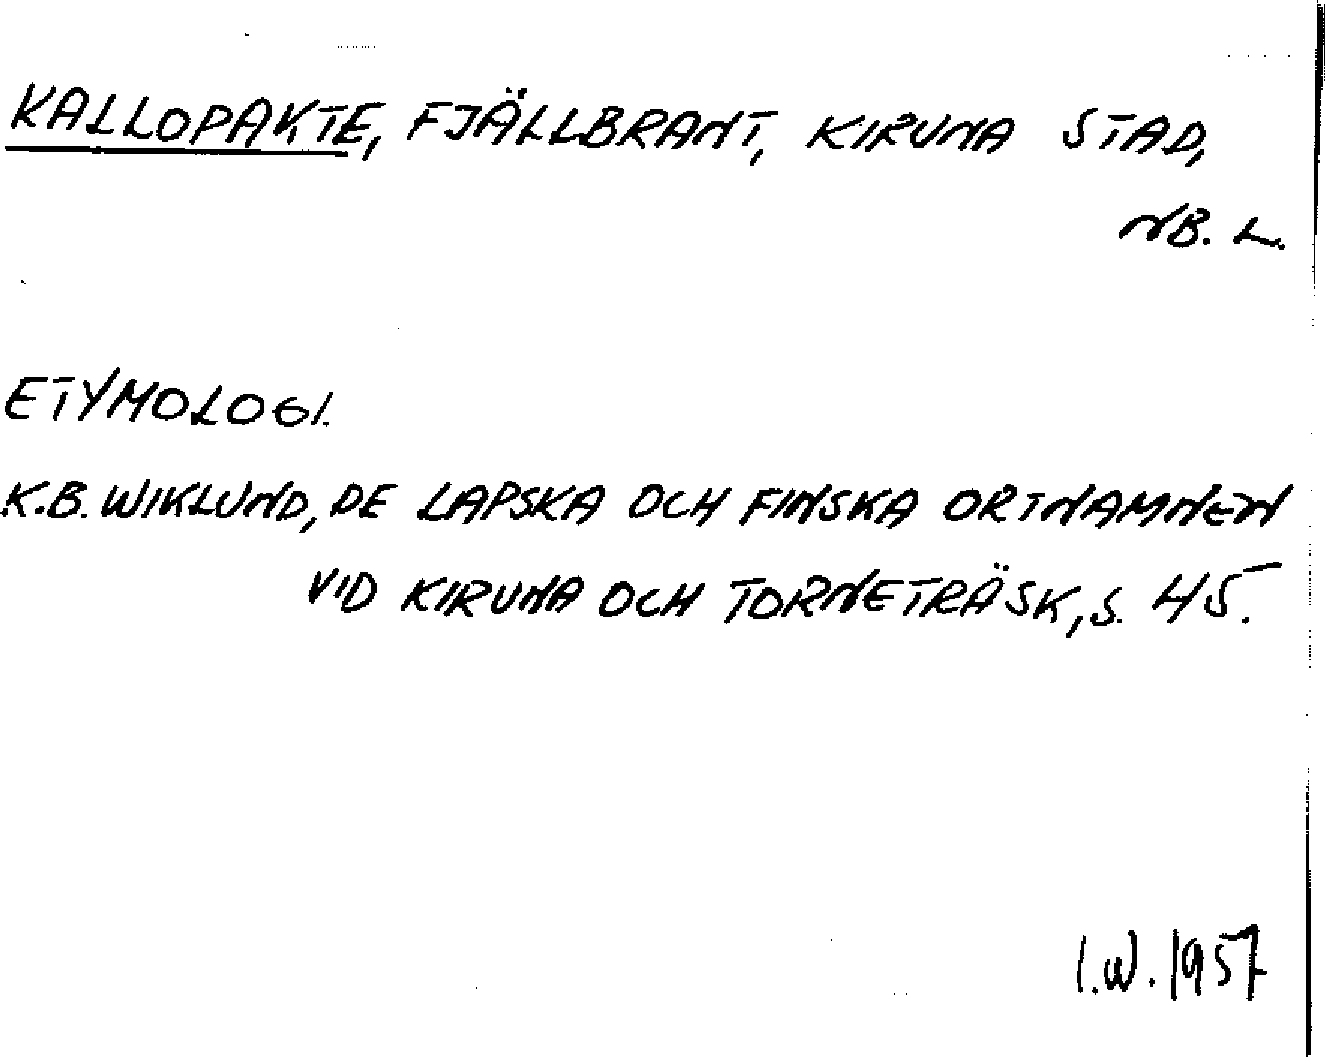 KALLOPAKTE, FJÄLLBRANT, KIRUNA STAD,
NB. L.
ETYMOLOGI.
K.B. WIKLUND, DE LAPSKA OCH FINSKA ORTNAMNEN
VID KIRUNA OCH TORNETRÄSK, S. 45.
I.W. 1957